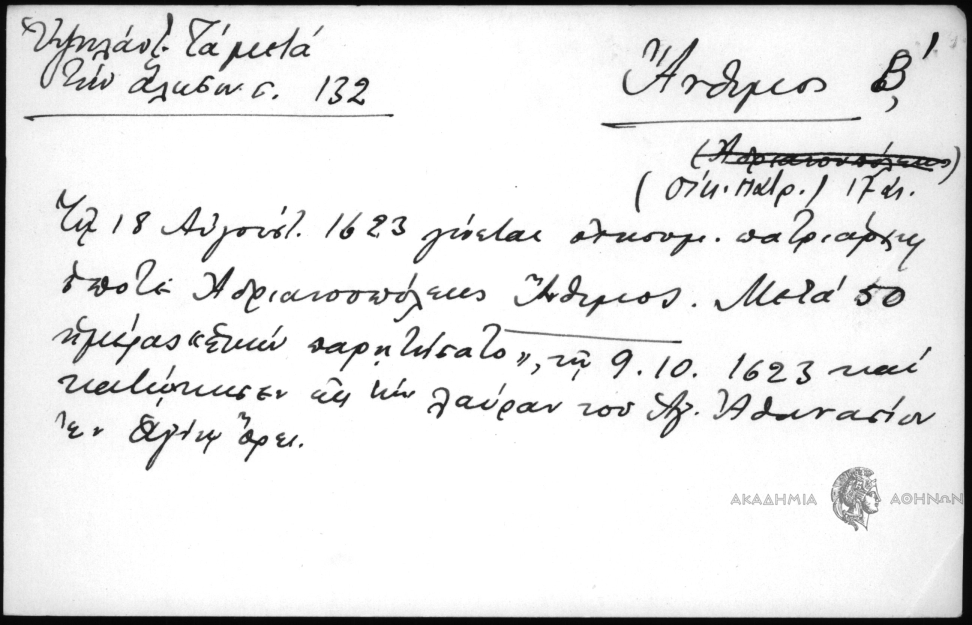 Ὑψηλάντ. Τά μετά
τήν ἅλωσιν σ. 132
Ἄνθιμος Β΄
(Ἀδριανουπόλεως)
(οἰκ. πατρ.) 17 αἰ.
Τῇ 18 Αὐγούστ. 1623 γίνεται οἰκουμ. πατριάρχης
ὁ ποτέ Ἀδριανουπόλεως Ἄνθιμος. Μετά 50
ἡμέρας «ἑκών παρῃτήσατο», τῇ 9.10.1623 καί
κατῴκησεν εἰς τήν λαύραν τοῦ Ἁγ. Ἀθανασίου
ἐν Ἁγίῳ Ὄρει.
ΑΚΑΔΗΜΙΑ ΑΘΗΝΩΝ